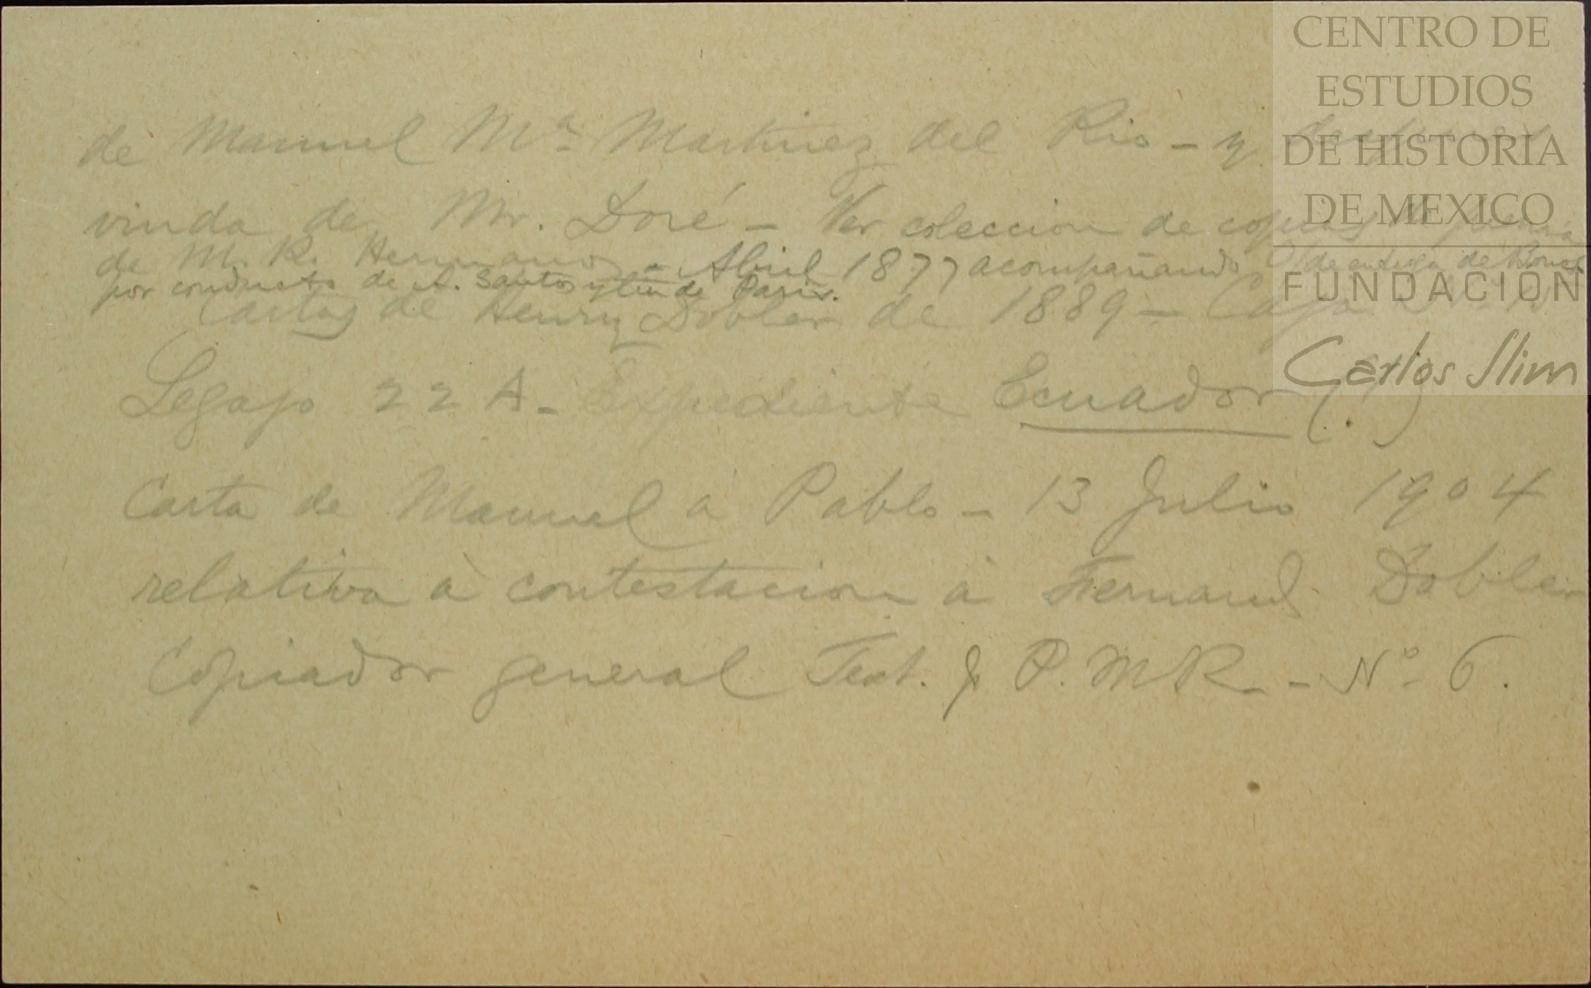 de Manuel Mª Martinez del Rio - y
viuda de Mr. Doré - Ver coleccion de copias
de M. R. Hermanos - Abril 1877 acompañando (de entrega de
por conducto de A. Santos y Cia de Paris.
Cartas de Henry Dobler de 1889 - Caja
Legajo 22 A - Expediente Ecuador (.)
Carta de Manuel á Pablo - 13 Julio 1904
relativa à contestacion á Fernand Dobler
Copiador general Test. J. P. M R. - Nº 6.
CENTRO DE
ESTUDIOS
DE HISTORIA
DE MEXICO
FUNDACION
Carlos Slim